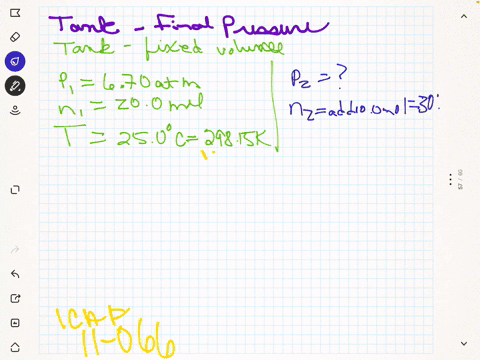 Tank - Final Pressure
Tank - fixed volume
P₁ = 6.70 atm
n₁ = 20.0 mol
T = 25.0°C = 298.15K
P₂ = ?
n₂ = add 10.0 mol = 30.
ICAP
11-066
57 / 60